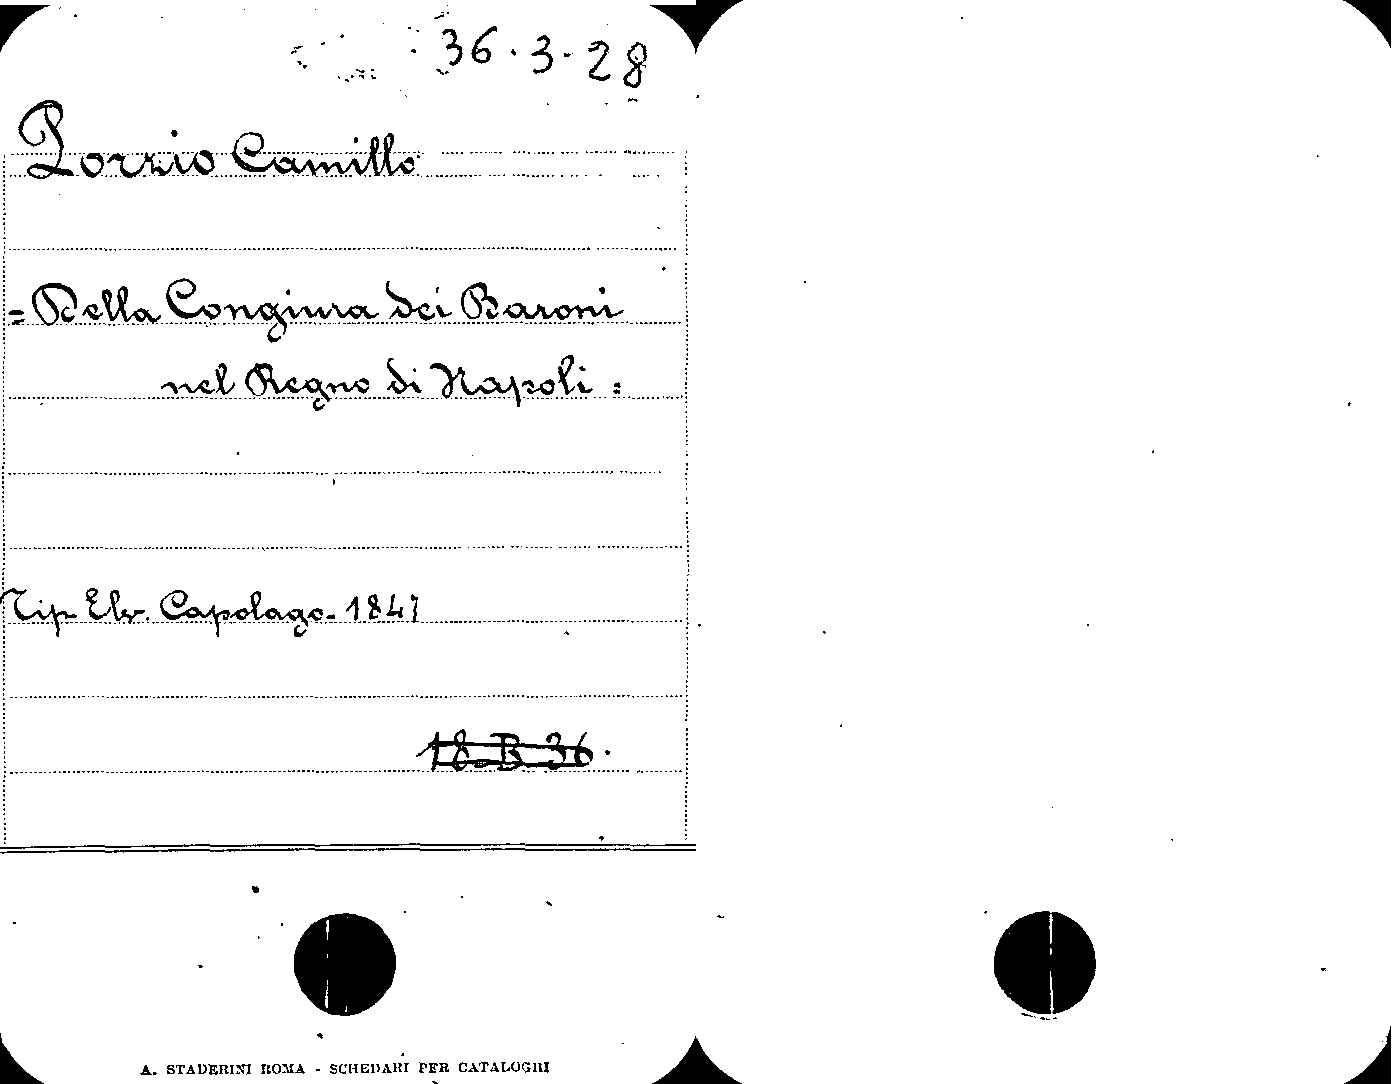 36.3.28
Porzio Camillo
= Della Congiura dei Baroni
nel Regno di Napoli =
Tip. Elv. Capolago. 1847
18-B 36.
A. STADERINI ROMA - SCHEDARI PER CATALOGHI